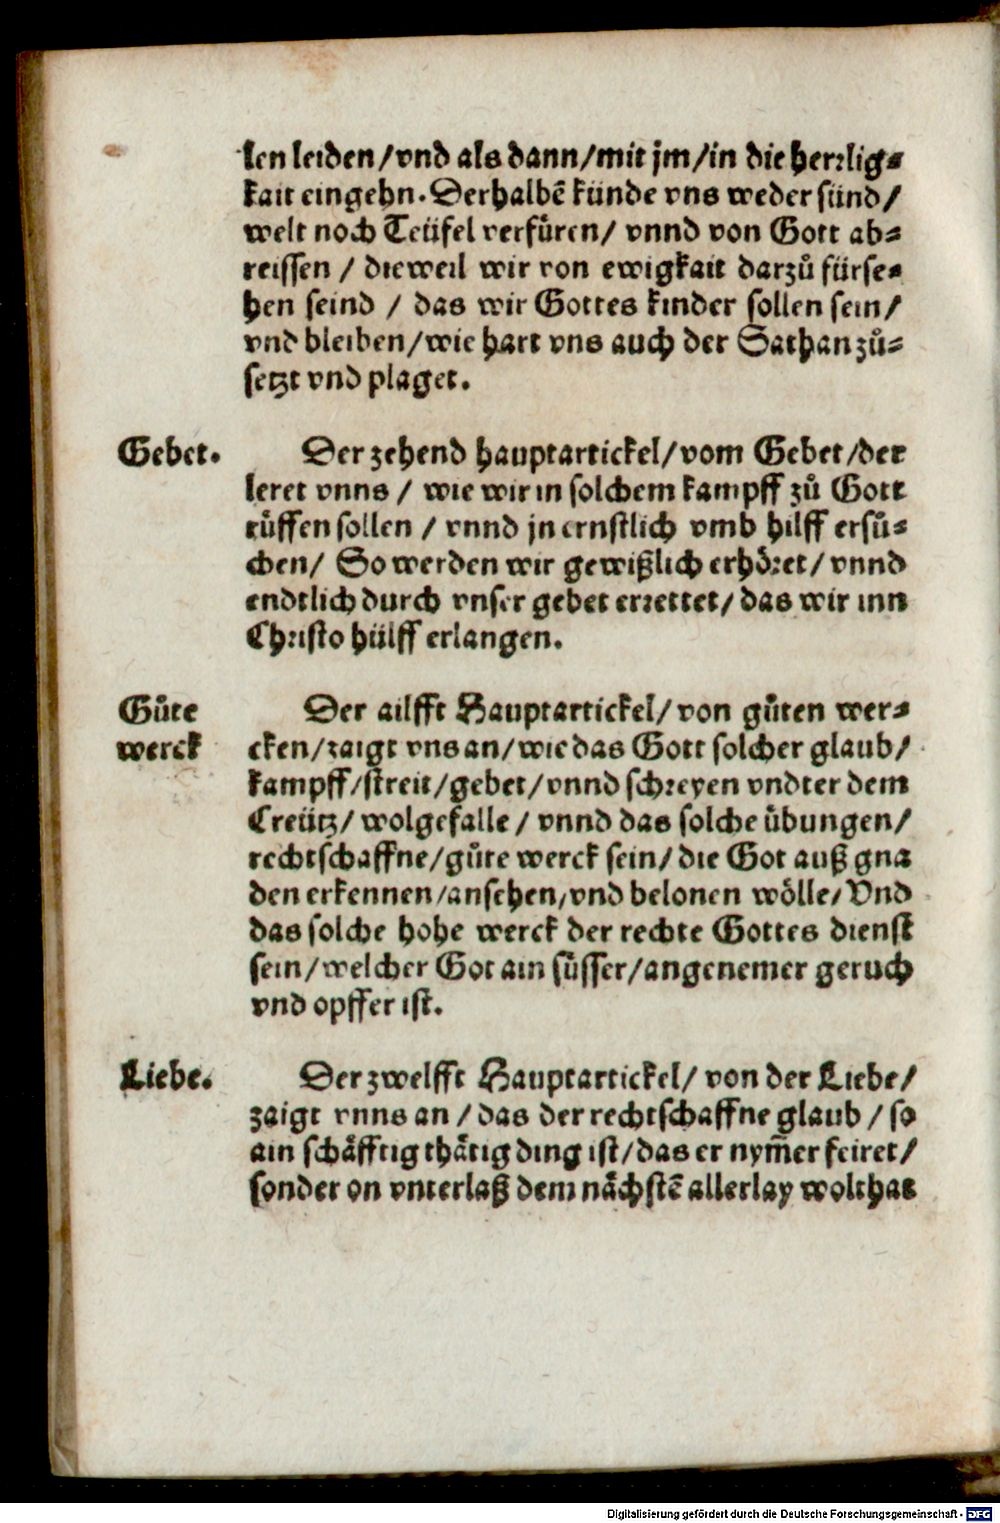 len leiden/vnd als dann/mit jm/in die herrlig⸗
kait eingehn. Derhalbē künde vns weder sünd/
welt noch Teüfel verfüren/ vnnd von Gott ab⸗
reissen / dieweil wir von ewigkait darzů fürse⸗
hen seind / das wir Gottes kinder sollen sein/
vnd bleiben/wie hart vns auch der Sathan zů⸗
setzt vnd plaget.
Gebet.
Der zehend hauptartickel/vom Gebet/der
leret vnns / wie wir in solchem kampff zů Gott
růffen sollen / vnnd jn ernstlich vmb hilff ersů⸗
chen/ So werden wir gewißlich erhöret/ vnnd
endtlich durch vnser gebet errettet/ das wir inn
Christo hülff erlangen.
Gůte
werck
Der ailfft Hauptartickel/ von gůten wer⸗
cken/zaigt vns an/wie das Gott solcher glaub/
kampff/streit/gebet/vnnd schreyen vndter dem
Creütz/ wolgefalle / vnnd das solche übungen/
rechtschaffne/gůte werck sein/ die Got auß gna
den erkennen/ansehen/vnd belonen wölle/ Vnd
das solche hohe werck der rechte Gottes dienst
sein/welcher Got ain süsser/angenemer geruch
vnd opffer ist.
Liebe.
Der zwelfft Hauptartickel/ von der Liebe/
zaigt vnns an / das der rechtschaffne glaub / so
ain schäfftig thätig ding ist/das er nym̄er feiret/
sonder on vnterlaß dem nächstē allerlay wolthat
Digitalisierung gefördert durch die Deutsche Forschungsgemeinschaft - DFG